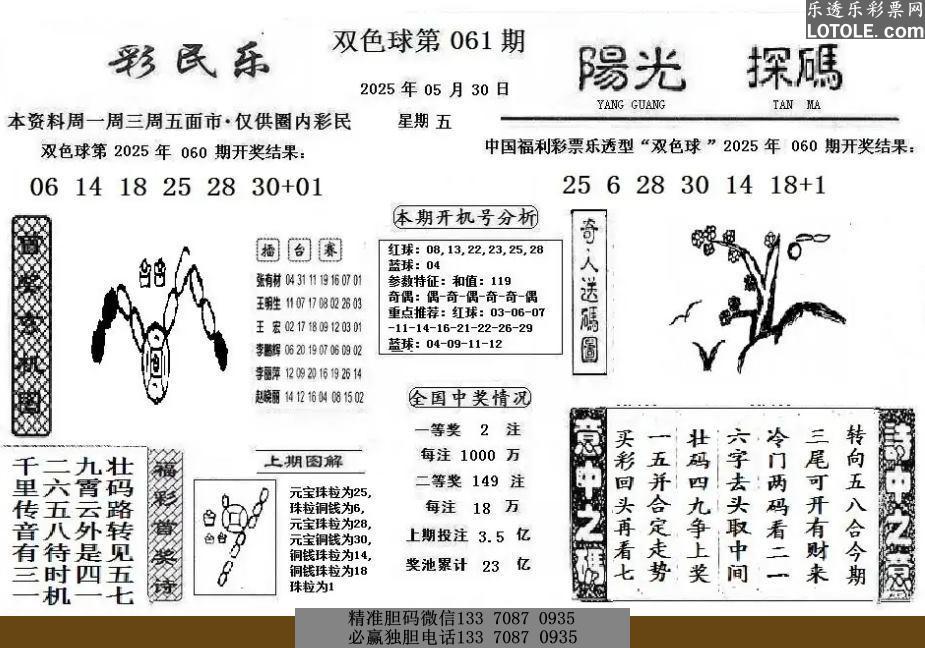 乐透乐彩票网
LOTOLE.com
彩民乐
双色球第 061 期
2025 年 05 月 30 日
星期 五
陽光 探碼
YANG GUANG TAN MA
本资料周一周三周五面市·仅供圈内彩民
双色球第 2025 年 060 期开奖结果：
06 14 18 25 28 30+01
中国福利彩票乐透型“双色球”2025 年 060 期开奖结果：
25 6 28 30 14 18+1
首奖玄机图
擂台赛
张有材 04 31 11 19 16 07 01
王明生 11 07 17 08 02 26 03
王 宏 02 17 18 09 12 03 01
李鹏辉 06 20 19 07 06 09 02
李丽萍 12 09 20 16 19 26 14
赵晓丽 14 12 16 04 08 15 02
本期开机号分析
红球：08,13,22,23,25,28
蓝球：04
参数特征：和值：119
奇偶：偶-奇-偶-奇-奇-偶
重点推荐：红球：03-06-07
-11-14-16-21-22-26-29
蓝球：04-09-11-12
奇人送碼圖
全国中奖情况
一等奖 2 注
每注 1000 万
二等奖 149 注
每注 18 万
上期投注 3.5 亿
奖池累计 23 亿
福彩首奖诗
壮码路转见五七
九霄云外是四一
二六五八待时机
千里传音有三一
上期图解
元宝珠粒为25,
珠粒铜钱为6,
元宝珠粒为28,
元宝铜钱为30,
铜钱珠粒为14,
铜钱珠粒为18
珠粒为1
转向五八合今期
三尾可开有财来
冷门两码看二一
六字去头取中间
壮码四九争上奖
一五并合定走势
买彩回头再看七
精准胆码微信133 7087 0935
必赢独胆电话133 7087 0935